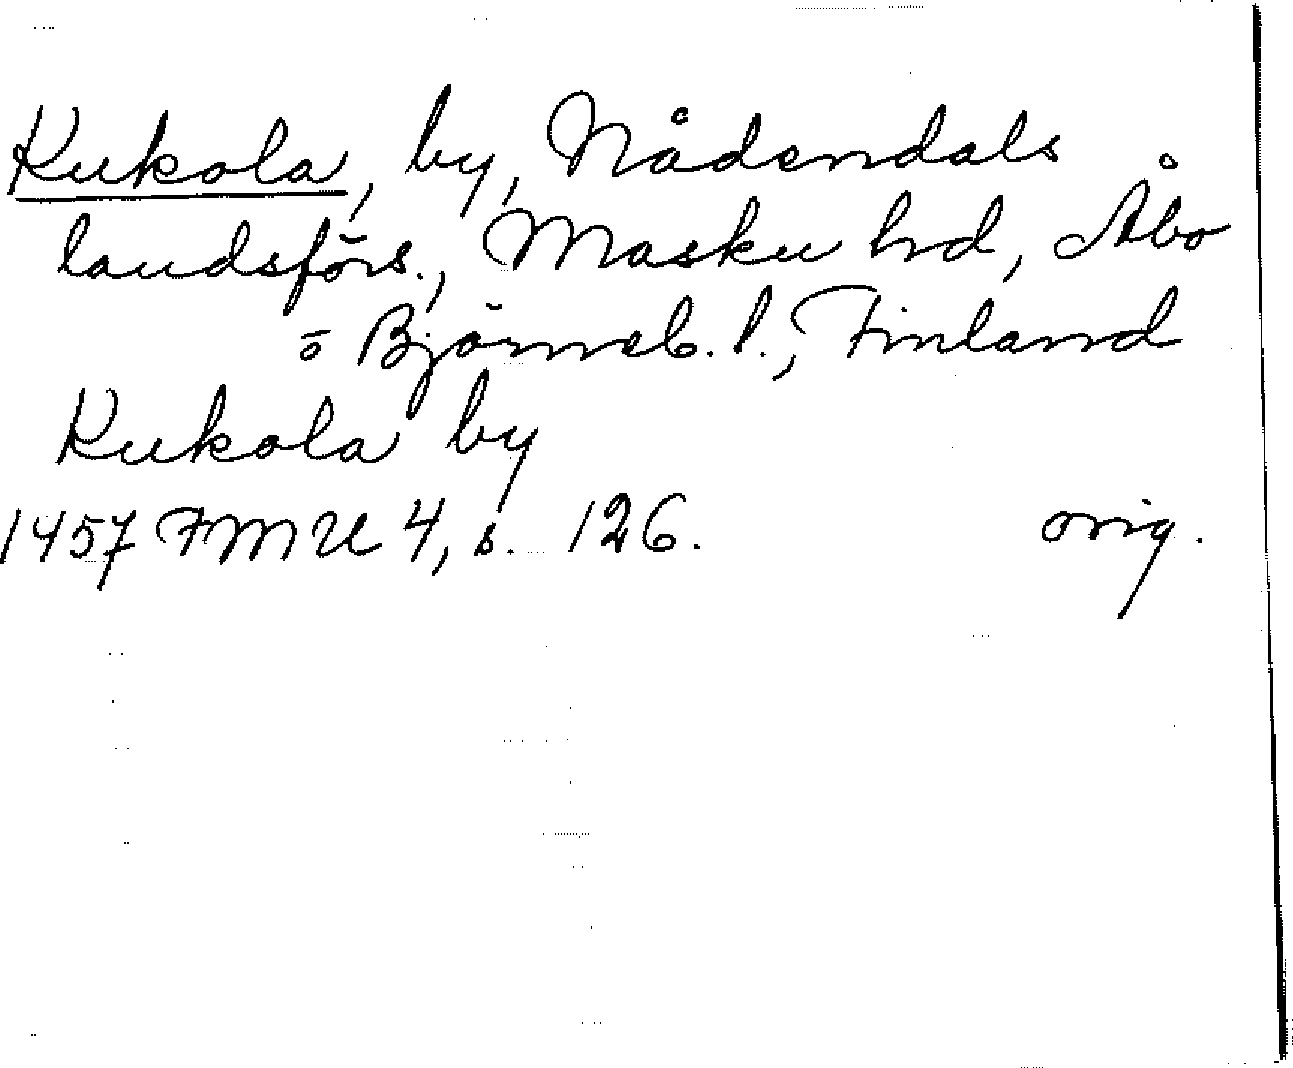 Kukola, by, Nådendals
landsförs., Masku hd, Åbo
o Björneb. l., Finland
Kukola by
1457 FMU 4, s. 126. orig.